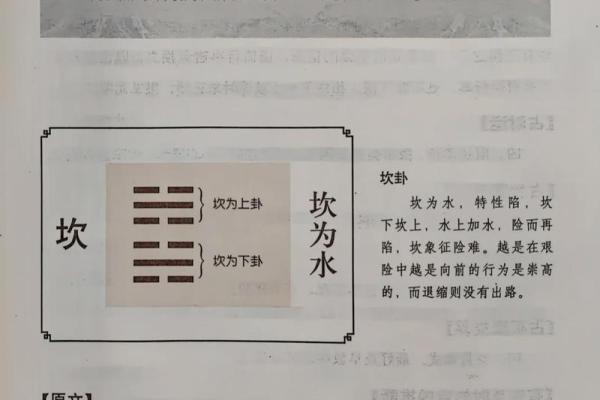 坎
坎为上卦
坎为下卦
坎为水
坎卦
坎为水，特性陷，坎
下坎上，水上加水，险而再
陷，坎象征险难。越是在艰
险中越是向前的行为是崇高
的，而退缩则没有出路。
【原文】